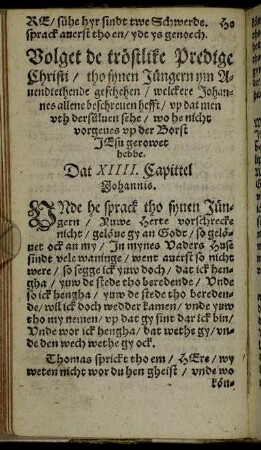 RE/ sühe hyr sindt twe Schwerde. He
sprack auerst tho en/ ydt ys genoech.
Volget de tröstlike Predige
Christi/ tho synen Jüngern ym A-
uendtethende geschehen/ welckere Johan-
nes allene beschreuen hefft/ vp dat men
vth dersüluen sehe/ wo he nicht
vorgeues vp der Borst
JEsu gerowet
hebbe.
Dat XIIII. Capittel
Johannis.
VNde he sprack tho synen Jün-
gern/ Juwe Herte vorschrecke
nicht/ gelöue gy an Godt/ so gelö-
uet ock an my/ In mynes Vaders Huse
sindt vele waninge/ went auerst so nicht
were/ so segge ick yuw doch/ dat ick hen-
gha/ yuw de stede tho beredende/ Vnde
so ick hengha/ yuw de stede tho bereden-
de/ wil ick doch wedder kamen/ vnde yuw
tho my nemen/ vp dat gy sint dar ick bin/
Vnde wor ick hengha/ dat wethe gy/ vn-
de den wech wethe gy ock.
Thomas sprickt tho em/ HEre/ wy
weten nicht wor du hen gheist/ vnde wo
kön-